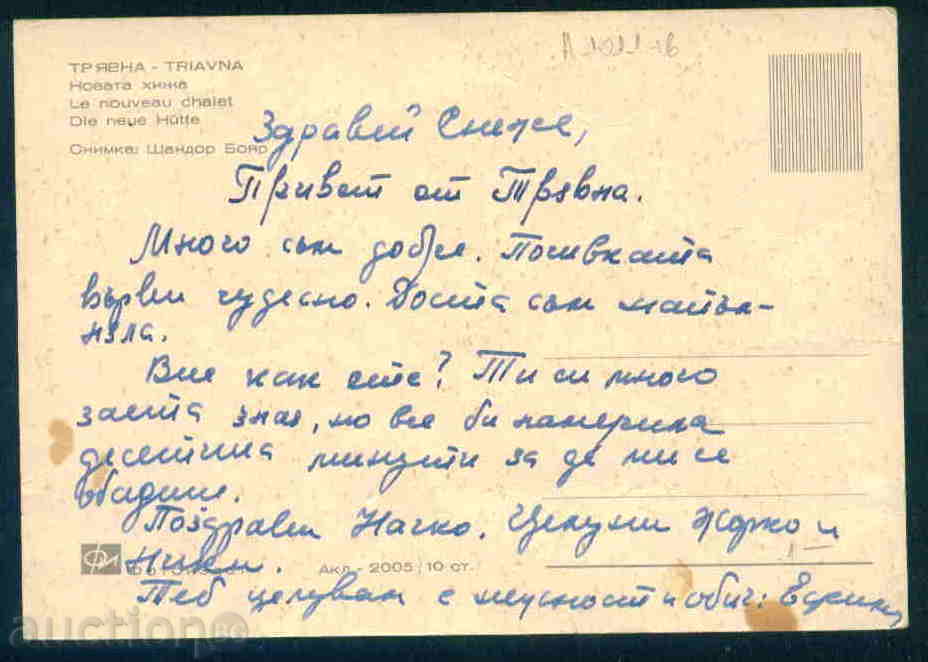 А-1011-В
ТРЯВНА - TRIAVNA
Новата хижа
Le nouveau chalet
Die neue Hütte
Снимка: Шандор Бояр
Здравей Снеже,
Привет от Трявна.
Много съм добре. Почивката
върви чудесно. Доста съм напъл-
няла.
Вие как сте? Ти си много
заета зная, но все би намерила
десетина минути за да ми се
обадиш.
Поздрави Начко. Целуни Жорко и
Ники.
Акл - 2005 / 10 ст.
1-
Теб целувам с нежност и обич:
auction